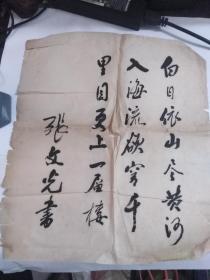 白日依山尽黄河
入海流欲穷千
里目更上一层楼
张文光书